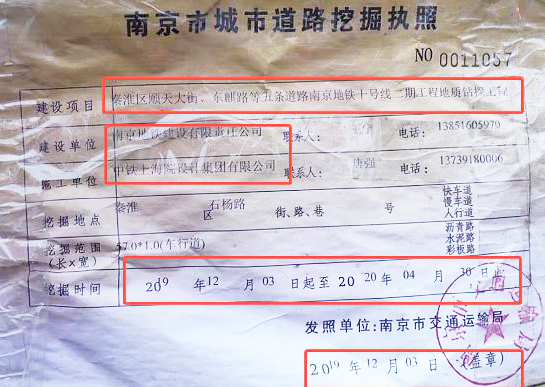 南京市城市道路挖掘执照
NO 0011057
建设项目 秦淮区顺天大街、东麒路等五条道路南京地铁十号线二期工程地质钻探工程
建设单位 南京地铁建设有限责任公司 联系人: 电话: 13851605970
施工单位 中铁上海院设计集团有限公司 联系人: 唐强 电话: 13739180006
挖掘地点 秦淮 区 石杨路 街、路、巷 号
快车道
慢车道
人行道
挖掘范围
(长×宽) 57.0*1.0(车行道)
沥青路
水泥路
彩板路
挖掘时间 2019 年 12 月 03 日起至 2020 年 04 月 30 日
发照单位:南京市交通运输局
2019 年 12 月 03 日 (盖章)